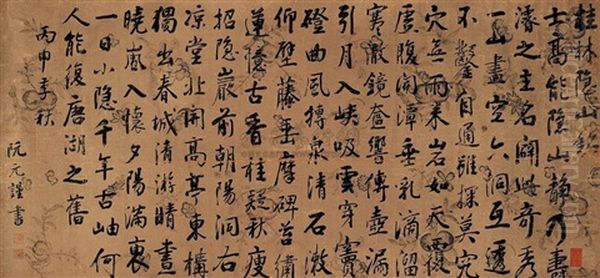 桂林隱山銘
士高能隱山静乃壽
濬之主名闢此奇秀
一山盡空六洞互透
不鑿自通雖探莫究
穴無雨来岩如天覆
虚腹開潭垂乳滴溜
寒澈鏡奩響傳壺漏
引月入峡吸雲穿竇
磴曲風摶泉清石漱
仰壁藤垂摩碑苔繡
蓮憶古香桂疑秋瘦
招隐巖前朝陽洞右
凉堂北開高亭東構
獨出春城清游晴晝
曉嵐入懷夕陽滿褏
一日小隐千年古岫何
人能復唐湖之舊
丙申季秋
阮元謹書